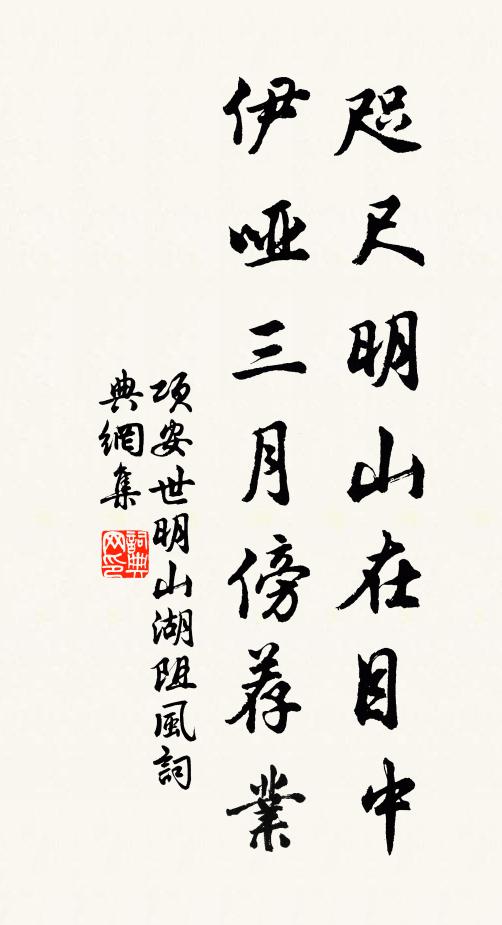 咫尺明山在目中
伊哑三月傍荐業
项安世明山湖阻風詞
典網集
詞典网印